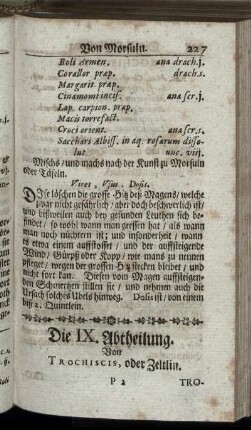 Von Morsuln. 227
Boli Armen. ana drach.j.
Corallor præp. drach.s.
Margarit præp.
Cinamomi incis. ana scr.j.
Lap. carpion. præp.
Macis torrefact.
Croci orient. ana scr.s.
Sacchari Albiss. in aq. rosarum disso-
lut. unc. viij.
Mischs / und machs nach der Kunst zu Morsuln
oder Täfeln.
Vires, Usus, Dosis.
DIse löschen die grosse Hitz deß Magens / welche
zwar nicht gefährlich / aber doch beschwerlich ist /
und bißweilen auch bey gesunden Leuthen sich be-
findet / so wohl wann man gessen hat / als wann
man noch nüchtern ist / und insonderheit / wann
es etwa einem auffstosset / und der auffsteigende
Wind / Gürpß oder Kopp / wie mans zu nennen
pfleget / wegen der grossen Hitz stecken bleibet / und
nicht fort kan. Diesen vom Magen auffsteigen-
den Schmertzen stillen sie / und nehmen auch die
Ursach solches Ubels hinweg. Dosis ist / von einem
biß 2. Quintlein.
Die IX. Abtheilung.
Von
TROCHISCIS, oder Zeltlin.
P 2 TRO-